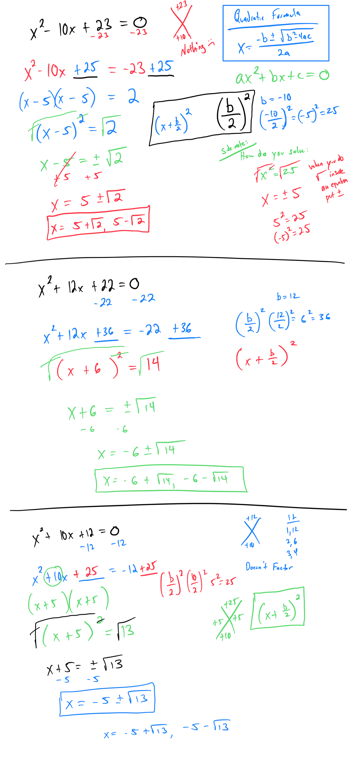 x² - 10x + 23 = 0
-23 -23
+23
-10
Nothing
Quadratic Formula
x = -b ± √b²-4ac / 2a
x² - 10x + 25 = -23 + 25
ax² + bx + c = 0
(x-5)(x-5) = 2
(x + b/2)² (b/2)²
b = -10
(-10/2)² = (-5)² = 25
√(x-5)² = √2
Side note:
How do you solve:
x - 5 = ± √2
+5 +5
√x² = √25
when you do √ inside an equation put ±
x = 5 ± √2
x = ± 5
5² = 25
(-5)² = 25
x = 5+√2, 5-√2
x² + 12x + 22 = 0
-22 -22
b = 12
x² + 12x + 36 = -22 + 36
(b/2)² (12/2)² = 6² = 36
√(x + 6)² = √14
(x + b/2)²
x + 6 = ± √14
-6 -6
x = -6 ± √14
x = -6 + √14, -6 - √14
x² + 10x + 12 = 0
-12 -12
+12
+10
12
1,12
2,6
3,4
Doesn't Factor
x² + 10x + 25 = -12 + 25
(b/2)² (10/2)² 5² = 25
(x+5)(x+5)
+25
+5 +5
+10
(x + b/2)²
√(x + 5)² = √13
x + 5 = ± √13
-5 -5
x = -5 ± √13
x = -5 + √13, -5 - √13